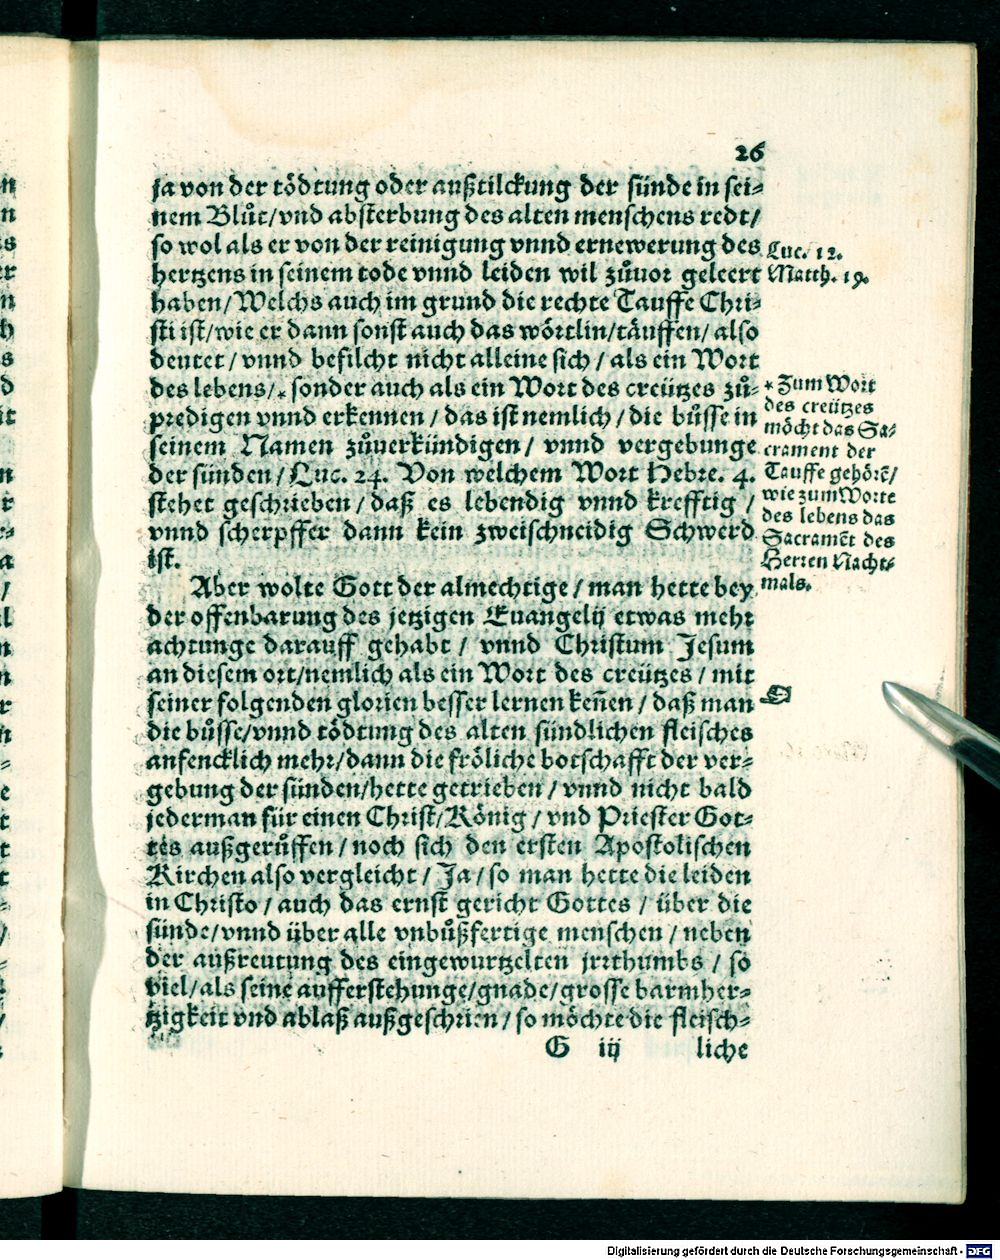 26
ja von der tödtung oder außtilckung der sünde in sei-
nem Blůt/vnd absterbung des alten menschens redt/
so wol als er von der reinigung vnnd ernewerung des
hertzens in seinem tode vnnd leiden wil zůuor geleert
haben/Welchs auch im grund die rechte Tauffe Chri-
sti ist/wie er dann sonst auch das wörtlin/täuffen/also
deutet/vnnd befilcht nicht alleine sich/als ein Wort
des lebens/* sonder auch als ein Wort des creützes zů-
predigen vnnd erkennen/das ist nemlich/die bůsse in
seinem Namen zůuerkündigen/vnnd vergebunge
der sünden/Luc. 24. Von welchem Wort Hebre. 4.
stehet geschrieben/daß es lebendig vnnd krefftig/
vnnd scherpffer dann kein zweischneidig Schwerd
ist.
Aber wolte Gott der almechtige/man hette bey
der offenbarung des jetzigen Euangelij etwas mehr
achtunge darauff gehabt/vnnd Christum Jesum
an diesem ort/nemlich als ein Wort des creützes/mit
seiner folgenden glorien besser lernen keñen/daß man
die bůsse/vnnd tödtung des alten sündlichen fleisches
anfencklich mehr/dann die fröliche botschafft der ver-
gebung der sünden/hette getrieben/vnnd nicht bald
jederman für einen Christ/König/vnd Priester Got-
tes außgerůffen/noch sich den ersten Apostolischen
Kirchen also vergleicht/Ja/so man hette die leiden
in Christo/auch das ernst gericht Gottes/über die
sünde/vnnd über alle vnbůßfertige menschen/neben
der außreutung des eingewurtzelten jrrthumbs/so
viel/als seine aufferstehunge/gnade/grosse barmher-
tzigkeit vnd ablaß außgeschrien/so möchte die fleisch-
G iij liche
Luc. 12.
Matth. 19.
* Zum Wort
des creützes
möcht das Sa-
crament der
Tauffe gehörẽ/
wie zum Worte
des lebens das
Sacramẽt des
Herren Nacht-
mals.
Digitalisierung gefördert durch die Deutsche Forschungsgemeinschaft - DFG